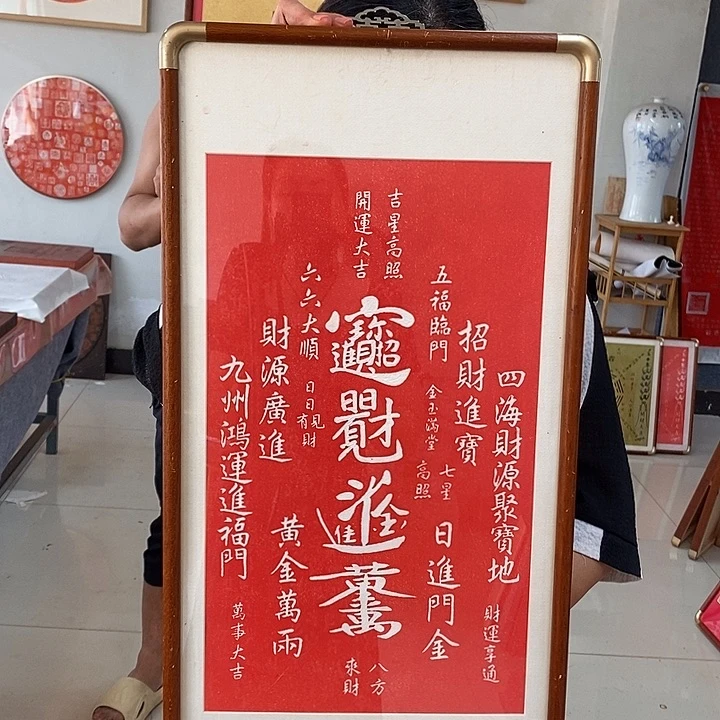 四海財源聚寶地
財運享通
招財進寶
五福臨門
金玉滿堂
七星
高照
日進門金
吉星高照
開運大吉
八方
來財
六六大順
日見財
日有
財源廣進
黃金萬兩
九州鴻運進福門
萬事大吉